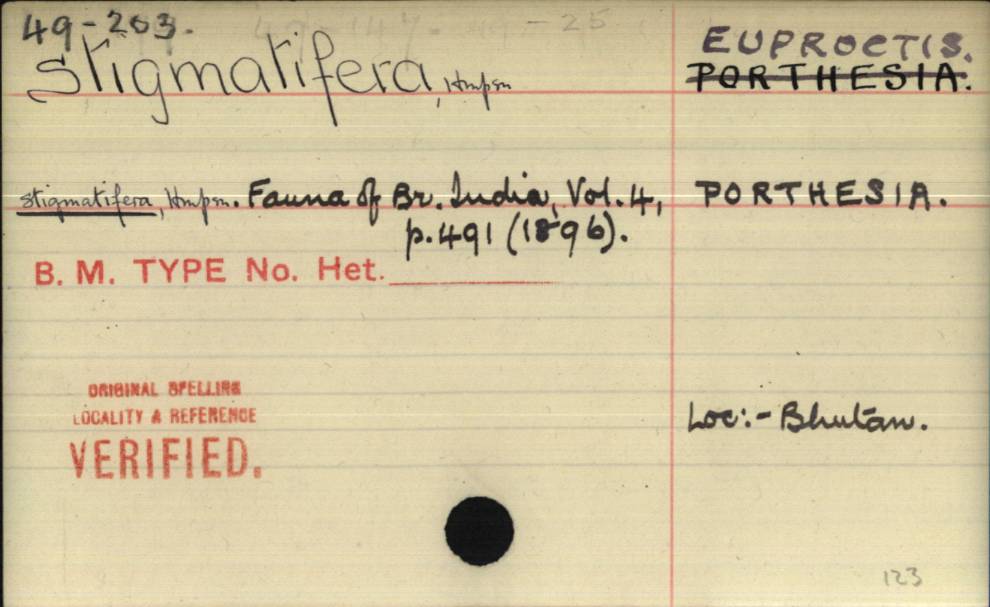 49-203.
EUPROCTIS.
stigmatifera, Hmpsn
PORTHESIA.
stigmatifera, Hmpsn. Fauna of Br. India, Vol. 4, PORTHESIA.
p. 491 (1896).
B. M. TYPE No. Het.
ORIGINAL SPELLING
LOCALITY & REFERENCE
VERIFIED.
Loc:- Bhutan.
123